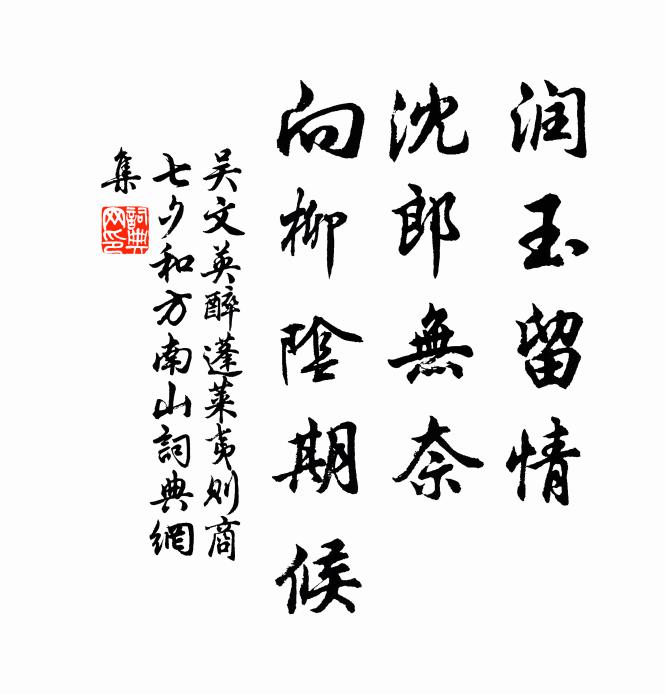 润玉留情
沈郎無奈
向柳陰期候
吴文英醉蓬莱夷则商
七夕和方南山詞典網
集
詞典
网印